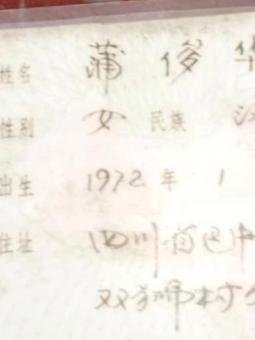 姓名 蒲俊华
性别 女 民族 汉
出生 1972年1
住址 四川省巴中
双狮村